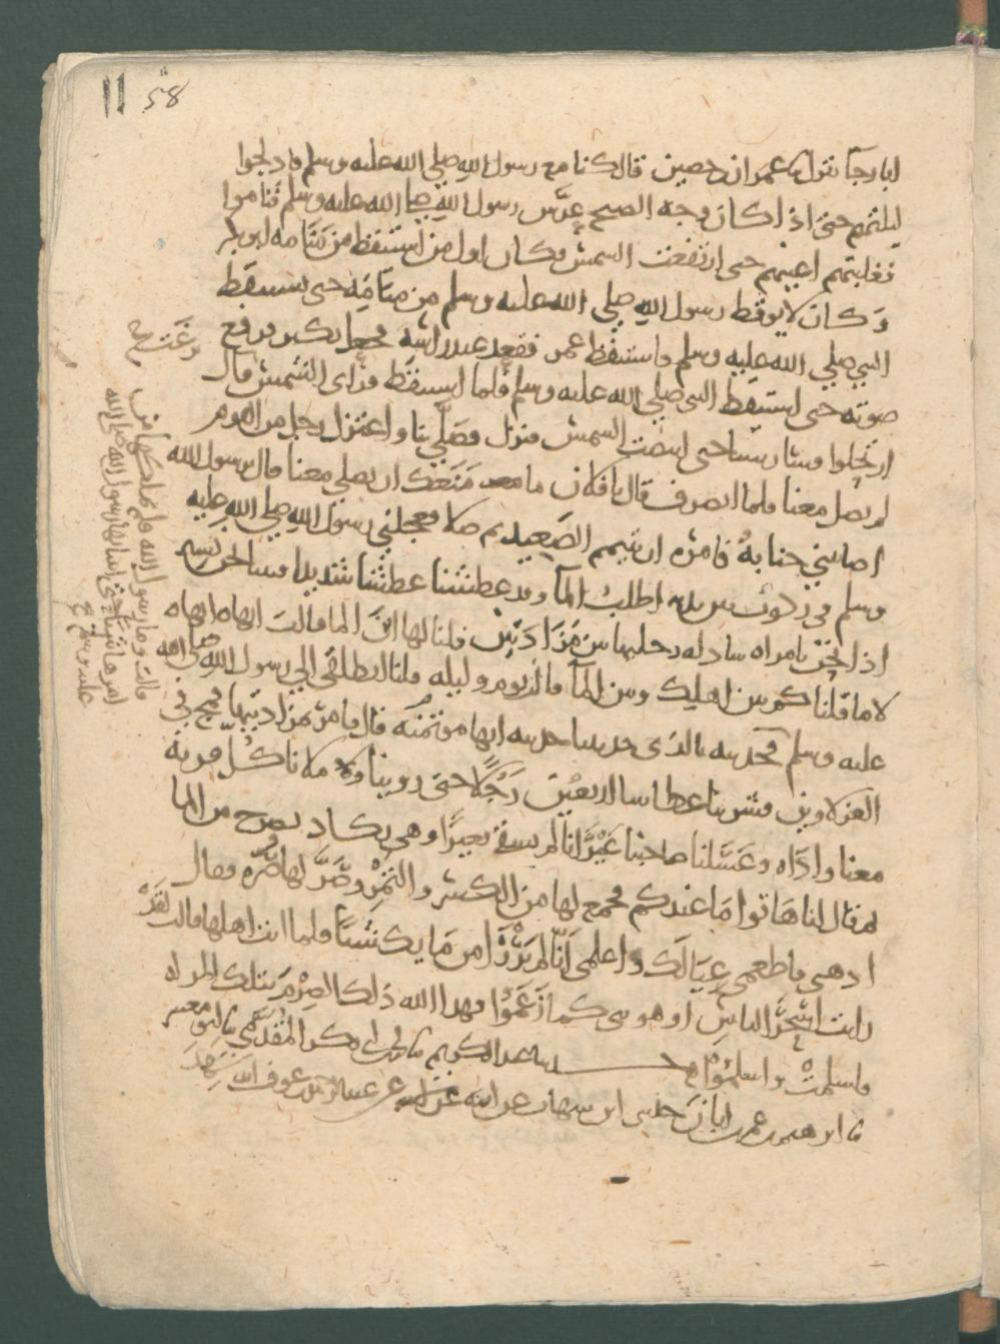 11 58
ابا رجا يقول نا عمران بن حصين قال كنا مع رسول الله صلى الله عليه وسلم فادلجوا
ليلتهم حتى اذا كان وجه الصبح عرّس رسول الله صلى الله عليه وسلم فناموا
فغلبتهم اعينهم حتى ارتفعت الشمس وكان اول من استيقظ من منامه ابو بكر
وكان لا يوقظ رسول الله صلى الله عليه وسلم من منامه حتى يستيقظ
النبي صلى الله عليه وسلم واستيقظ عمر فقعد عند راسه فجعل يكبر ويرفع
صوته حتى استيقظ النبي صلى الله عليه وسلم فلما استيقظ فراى الشمس قال
ارتحلوا فسار بنا حتى ابيضت الشمس فنزل فصلى بنا واعتزل رجل من القوم
لم يصل معنا فلما انصرف قال يا فلان ما منعك ان تصلي معنا قال يرسول الله
اصابتني جنابة فامره ان يتيمم الصعيد ثم صلا فعجلني رسول الله صلى الله عليه
وسلم في ركوب بين يديه اطلب الماء وقد عطشنا عطشا شديدا فبينا نحن نسير
اذا نحن بامراه سادله رجليها بين مزادتين قلنا لها اين الما قالت ايهاه ايهاه
لا ما قلنا كم بين اهلك وبين الماء قالت يوم وليله قلنا انطلقي الى رسول الله صلى الله
عليه وسلم فحدثته بالذي حدثتنا حدثته انها موتمة قال فامر بمزادتيها فمج في
العزلاوين فشربنا عطاشا اربعين رجلا حتى روينا وملانا كل قربة
معنا واداوه وغسّلنا صاحبنا غير انا لم نسق بعيرا وهي تكاد تضرج من الما
ثم قال لنا هاتوا ما عندكم فجمع لها من الكسر والتمر وصرّ لها صرة فقال
اذهبي فاطعمي عيالك واعلمي انا لم نرزا من مايك شيا فلما اتت اهلها قالت لقد
رايت اسحر الناس او هو نبي كما زعموا فهدا الله ذلك الصرم بتلك المراه
فاسلمت واسلموا
قالت وما رسول الله فلم نملكها من
امرها شيا حتى استقبلنا رسول الله صلى الله
عليه وسلم